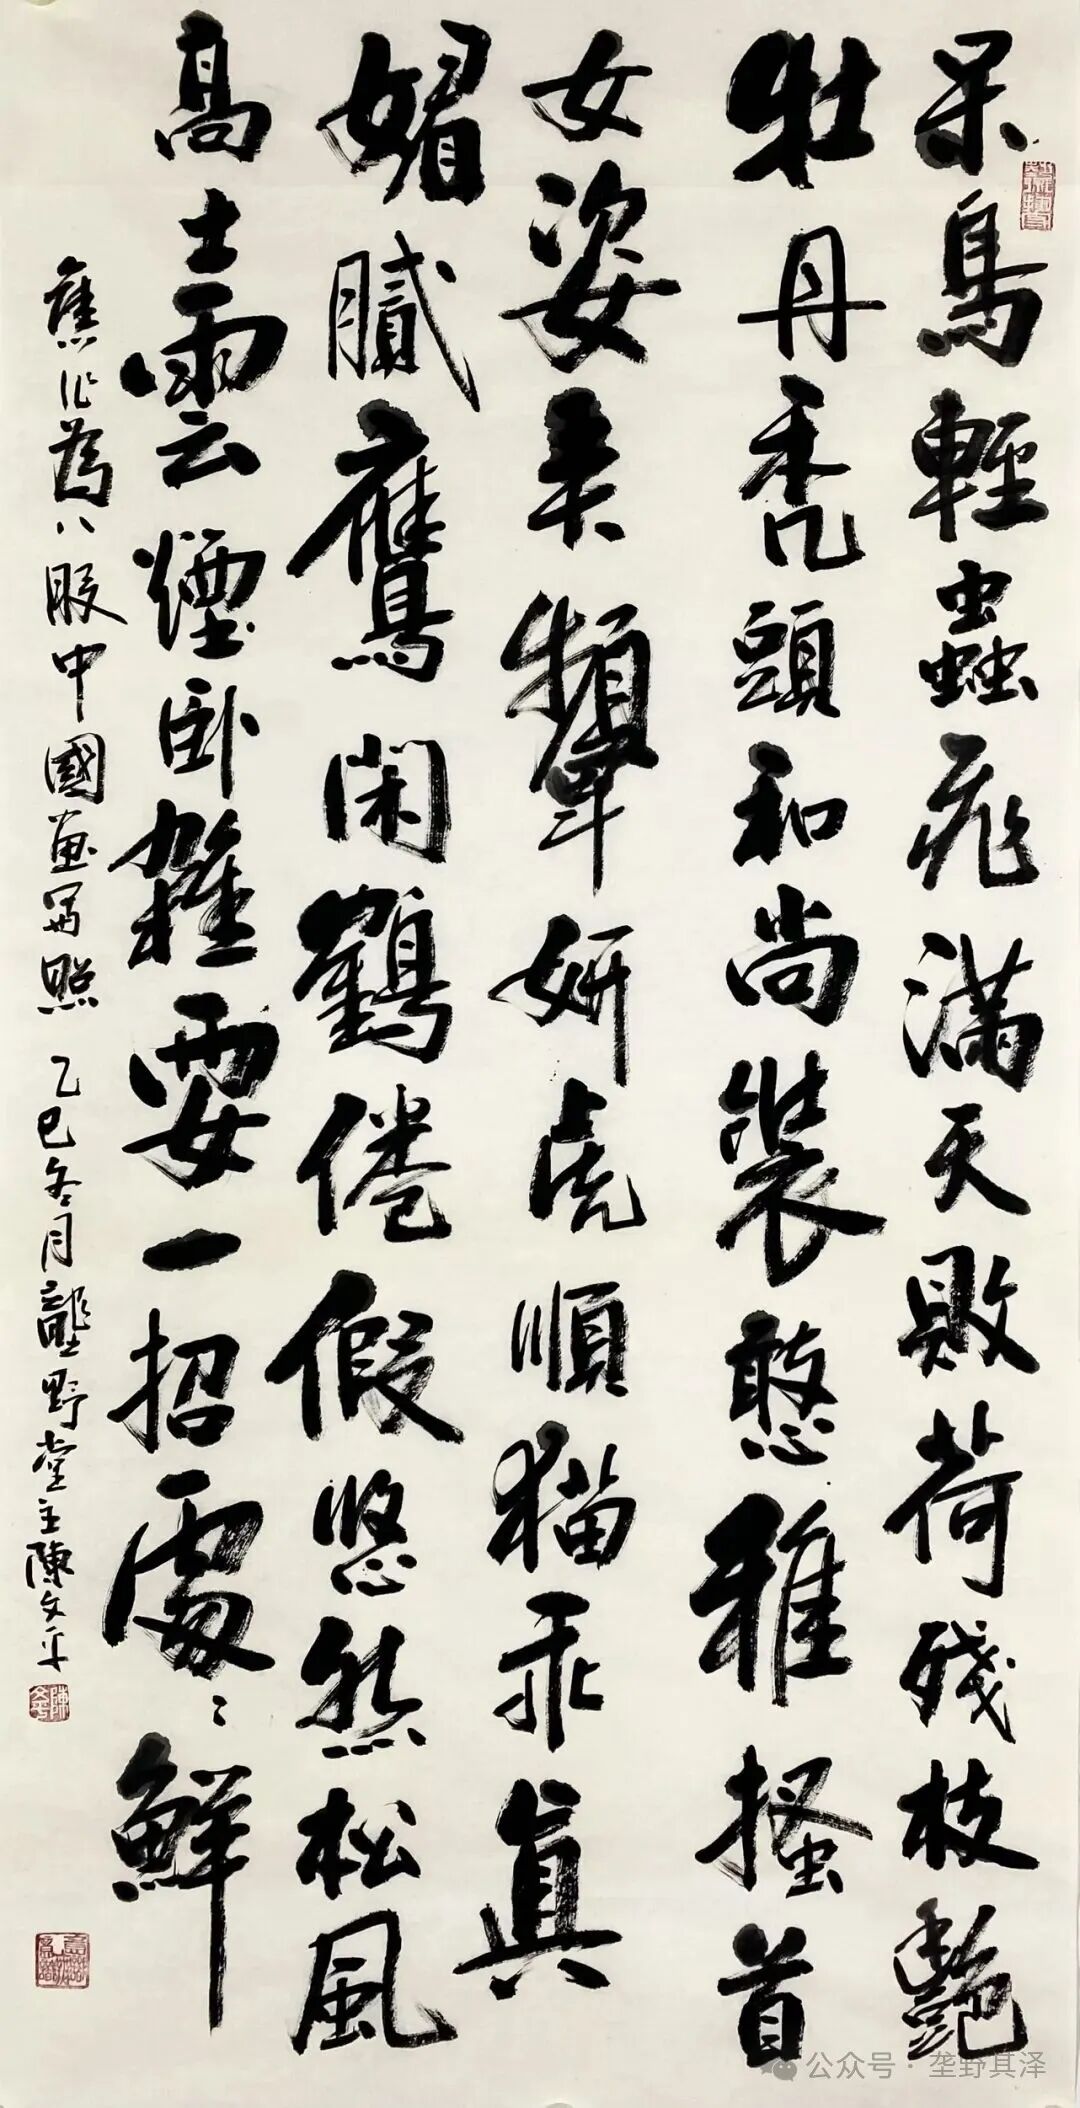 呆鳥輕蟲飛滿天敗荷殘枝艷
牡丹禿頭和尚裝憨雅搔首
女姿弄顰妍虎順猫乖真
媚膩鷹閑鶴倦假悠然松風
高士雲煙卧雜耍一招處〻鮮
舊作為八股中國畫寫照 乙巳冬月壟野堂主陳文平
公众号·垄野其泽